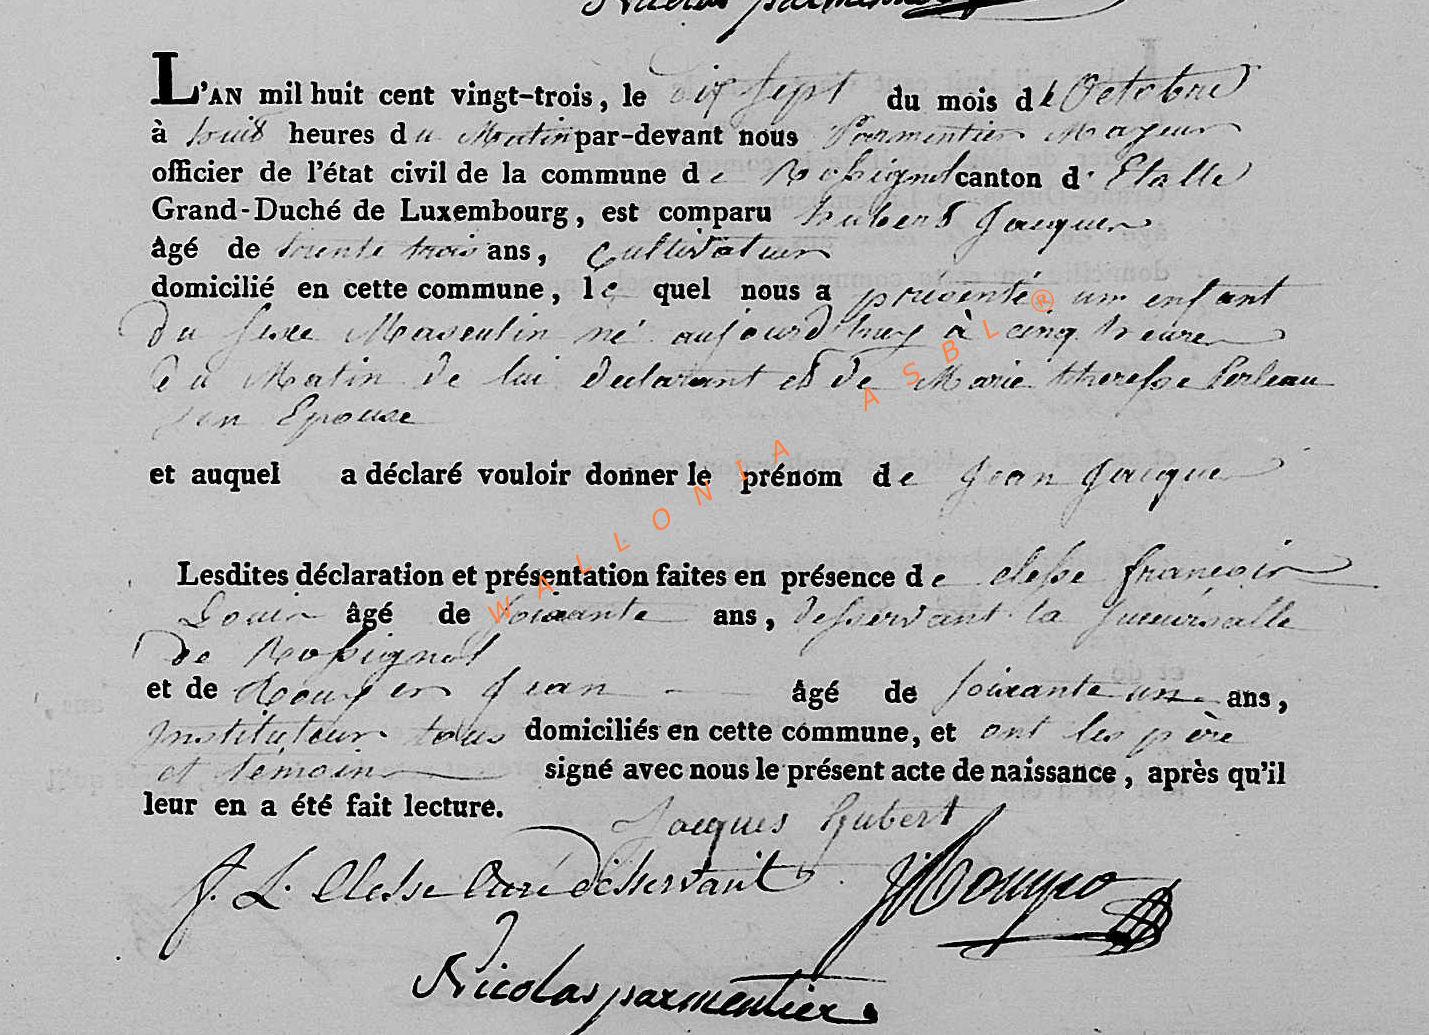 Nicolas parmentier
L'AN mil huit cent vingt-trois, le dix sept du mois de Octobre
à huit heures du Matin par-devant nous Parmentier Mayeur
officier de l'état civil de la commune de Rossignol canton d' Etalle
Grand-Duché de Luxembourg, est comparu hubert Jacques
âgé de trente trois ans, Cultivateur
domicilié en cette commune, le quel nous a présenté un enfant
du sexe Masculin né aujourd'huy à cinq heures
du Matin de lui declarant et de Marie theresse Perleau
son Epouse
et auquel a déclaré vouloir donner le prénom de Jean Jacques
Lesdites déclaration et présentation faites en présence de clesse francois
Louis âgé de soixante ans, desservant la succursalle
de Rossignol
et de Jean âgé de soixante un ans,
Instituteur tous domiciliés en cette commune, et ont les père
et témoins signé avec nous le présent acte de naissance, après qu'il
leur en a été fait lecture.
Jacques Hubert
f. L. Clesse Curé désservant
Nicolas parmentier
WALLONIA ASBL ®